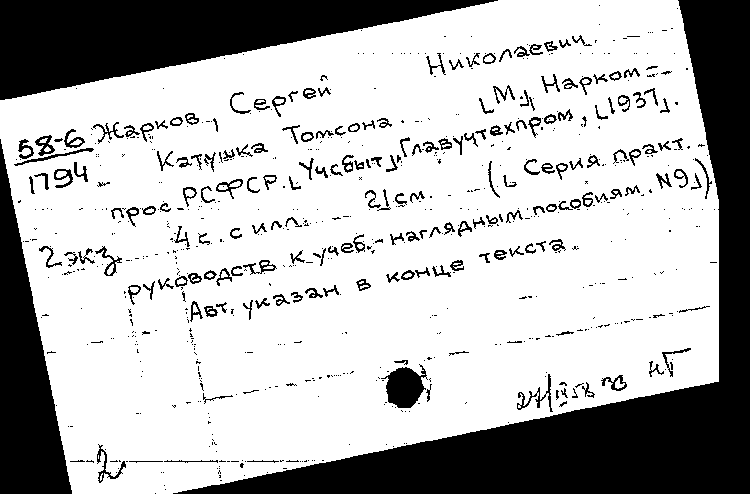 58-6 Жарков, Сергей Николаевич.
1794 Катушка Томсона. [М.], Нарком=
прос РСФСР. [Учсбыт], Главучтехпром, [1937].
2 экз. 4 с. с илл. 21 см. ([Серия практ.
руководств к учеб.-наглядным пособиям. №9])
Авт. указан в конце текста.
27/IX 58
2